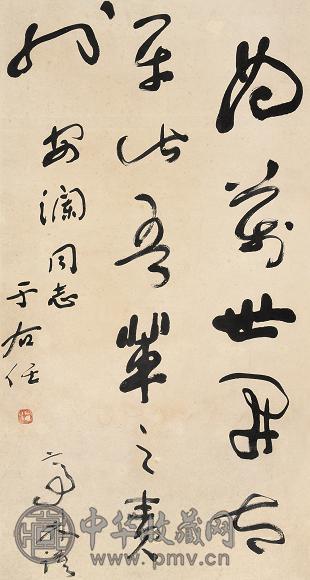 為萬世開太
平此吾輩之責
也
安瀾同志
于右任
中华收藏网
www.pmv.cn